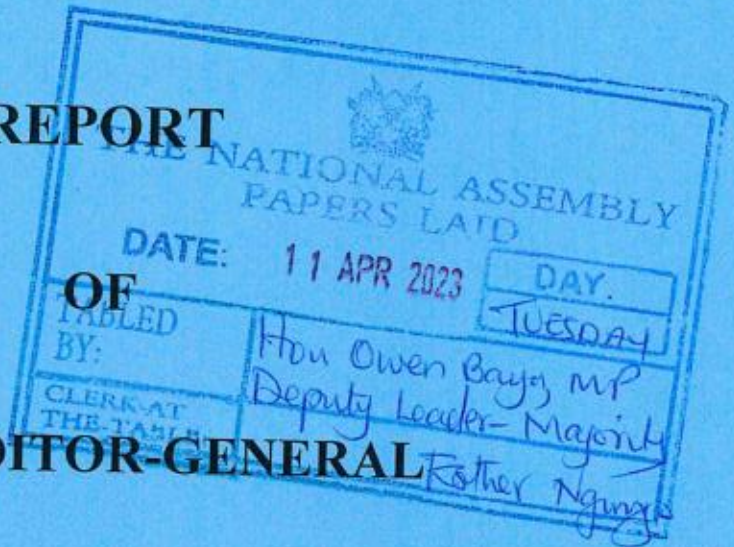 REPORT
THE NATIONAL ASSEMBLY
PAPERS LAID
DATE: 11 APR 2023 DAY.
TUESDAY
OF
TABLED
BY: Hon Owen Baya, MP
Deputy Leader-Majority
CLERK-AT
THE-TABLE
DITOR-GENERAL